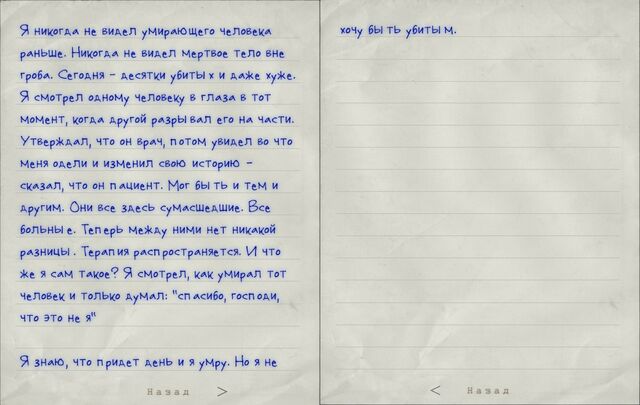 Я никогда не видел умирающего человека
раньше. Никогда не видел мертвое тело вне
гроба. Сегодня - десятки убитых и даже хуже.
Я смотрел одному человеку в глаза в тот
момент, когда другой разрывал его на части.
Утверждал, что он врач, потом увидел во что
меня одели и изменил свою историю -
сказал, что он пациент. Мог быть и тем и
другим. Они все здесь сумасшедшие. Все
больные. Теперь между ними нет никакой
разницы. Терапия распространяется. И что
же я сам такое? Я смотрел, как умирал тот
человек и только думал: "спасибо, господи,
что это не я"
Я знаю, что придет день и я умру. Но я не
Назад >
хочу быть убитым.
< Назад